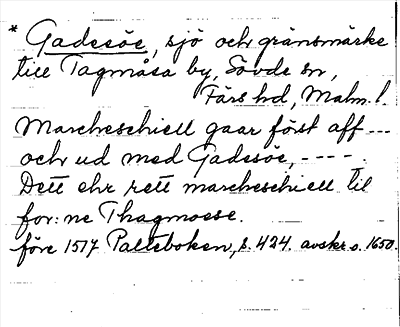 * Gadesöe, sjö och gränsmärke
till Tagmåsa by, Sövde sn,
Färs hd, Malm. l.
Marcheschiell gaar först aff ---
och ud med Gadesöe, ----.
Dett ehr rett marcheschiell til
for:ne Thagmoese.
före 1517 Palteboken, s. 424. avskr. o. 1650.